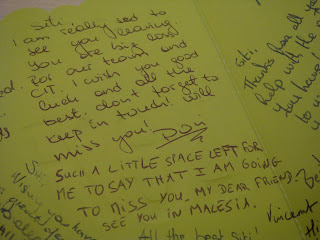 Siti
I am really sad to
see you leaving.
You are big loss
for our team and
CIT. I wish you good
luck and all the
best, don't forget to
keep in touch! Will
miss you! Don
SUCH A LITTLE SPACE LEFT FOR
ME TO SAY THAT I AM GOING
TO MISS YOU, MY DEAR FRIEND.
SEE YOU IN MALESIA.
Vincent
All the best Siti!
Siti,
Thanks for all yo
help with the
You have
to